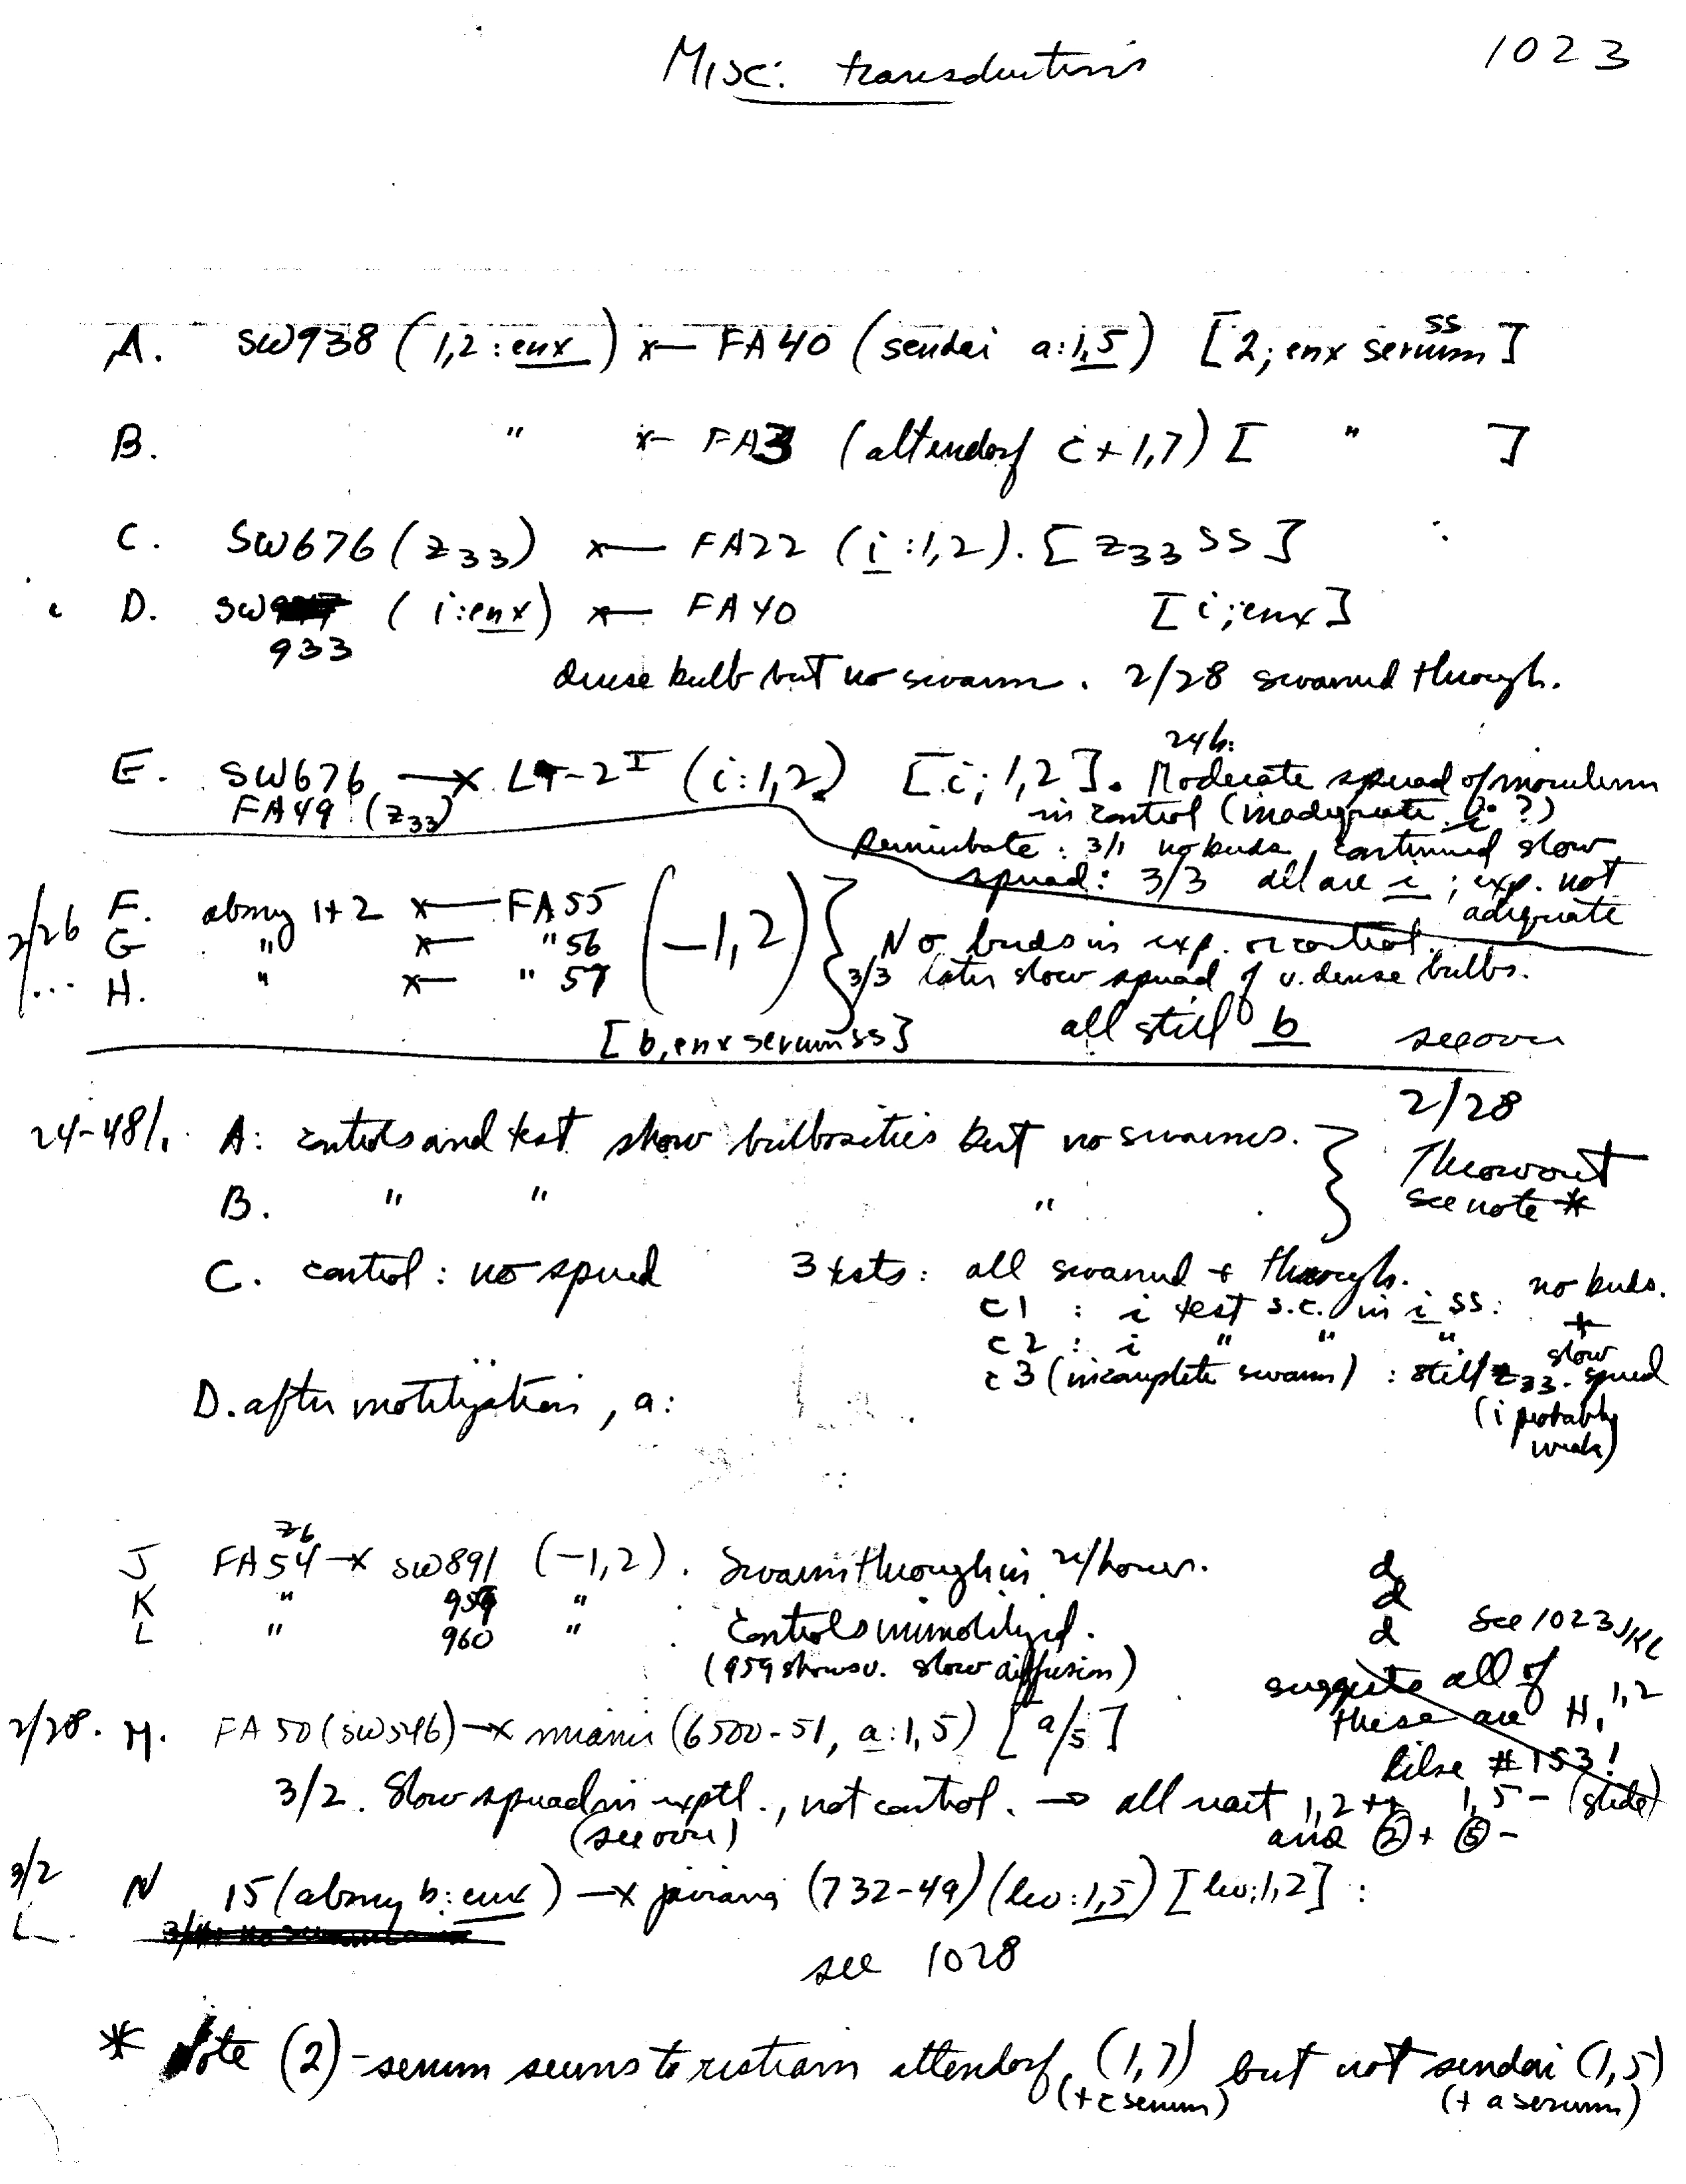 Misc: transductions 1023
A. SW938 (1,2:enx) x— FA40 (sendai a:1,5) [2; enx serum ss]
B. " x— FA3 (altendorf c+1,7) [ " ]
C. SW676 (z33) x— FA22 (i:1,2). [z33 SS]
D. SW 933 (i:enx) x— FA40 [i;enx]
dense bulb but no swarm. 2/28 swarmed through.
E. SW676 —x LT-2 I (i:1,2) [i; 1,2]. 24h: Moderate spread of inoculum
FA49 (z33) in control (inadequate i ?)
Reincubate: 3/1 no buds, continued slow
spread: 3/3 all are i; exp. not
adequate
2/26 F. abony 1+2 x— FA55 (-1,2)
G " x— "56 No buds in exp. or control.
H. " x— "57 3/3 later slow spread of v. dense bulbs.
[b, enx serum ss] all still b see over
24-48h. A: controls and test show bulbosities but no swarms. 2/28
Throw out
B. " " " see note *
C. control: no spread 3 tests: all swarmed + through.
c1 : i test s.c. in i ss: no buds.
c2 : i " " " + slow
c3 (incomplete swarm) : still z33. spread
(i probably
weak)
D. after motilization, a:
J FA54 z6 —x SW891 (-1,2). Swarm through in 24 hours. d
K " 959 " d
L " 960 " Controls immobilized. d See 1023JKL
(959 shows v. slow diffusion)
suggests all of
these are H1 1,2
like #153!
2/28. M. FA50 (SW546) —x miami (6500-51, a:1,5) [a/5]
3/2. Slow spread in exptl., not control. → all react 1,2++ 1,5- (slide)
(see over) and ②+ ⑤-
3/2 N 15 (abony b:enx) —x javiana (732-49) (lw:1,5) [lw;1,2] :
see 1028
* Note (2)-serum seems to restrain altendorf (1,7) but not sendai (1,5)
(+ c serum) (+ a serum)